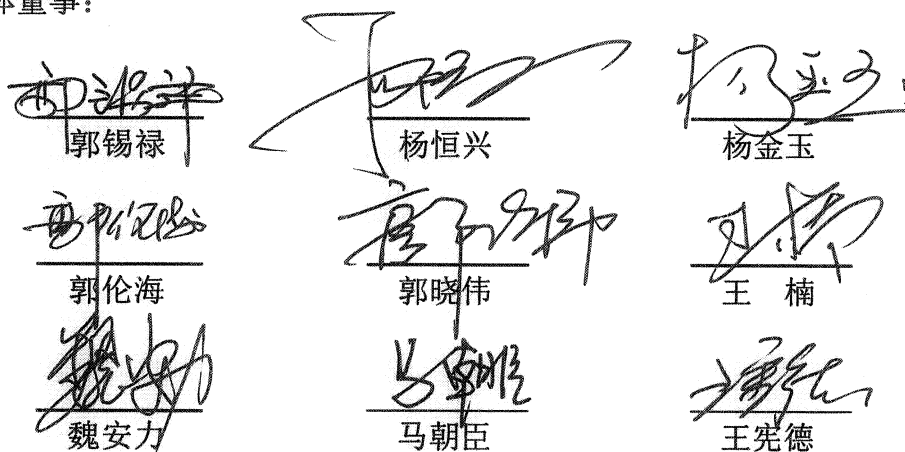 体董事：
郭锡禄 杨恒兴 杨金玉
郭伦海 郭晓伟 王 楠
魏安力 马朝臣 王宪德